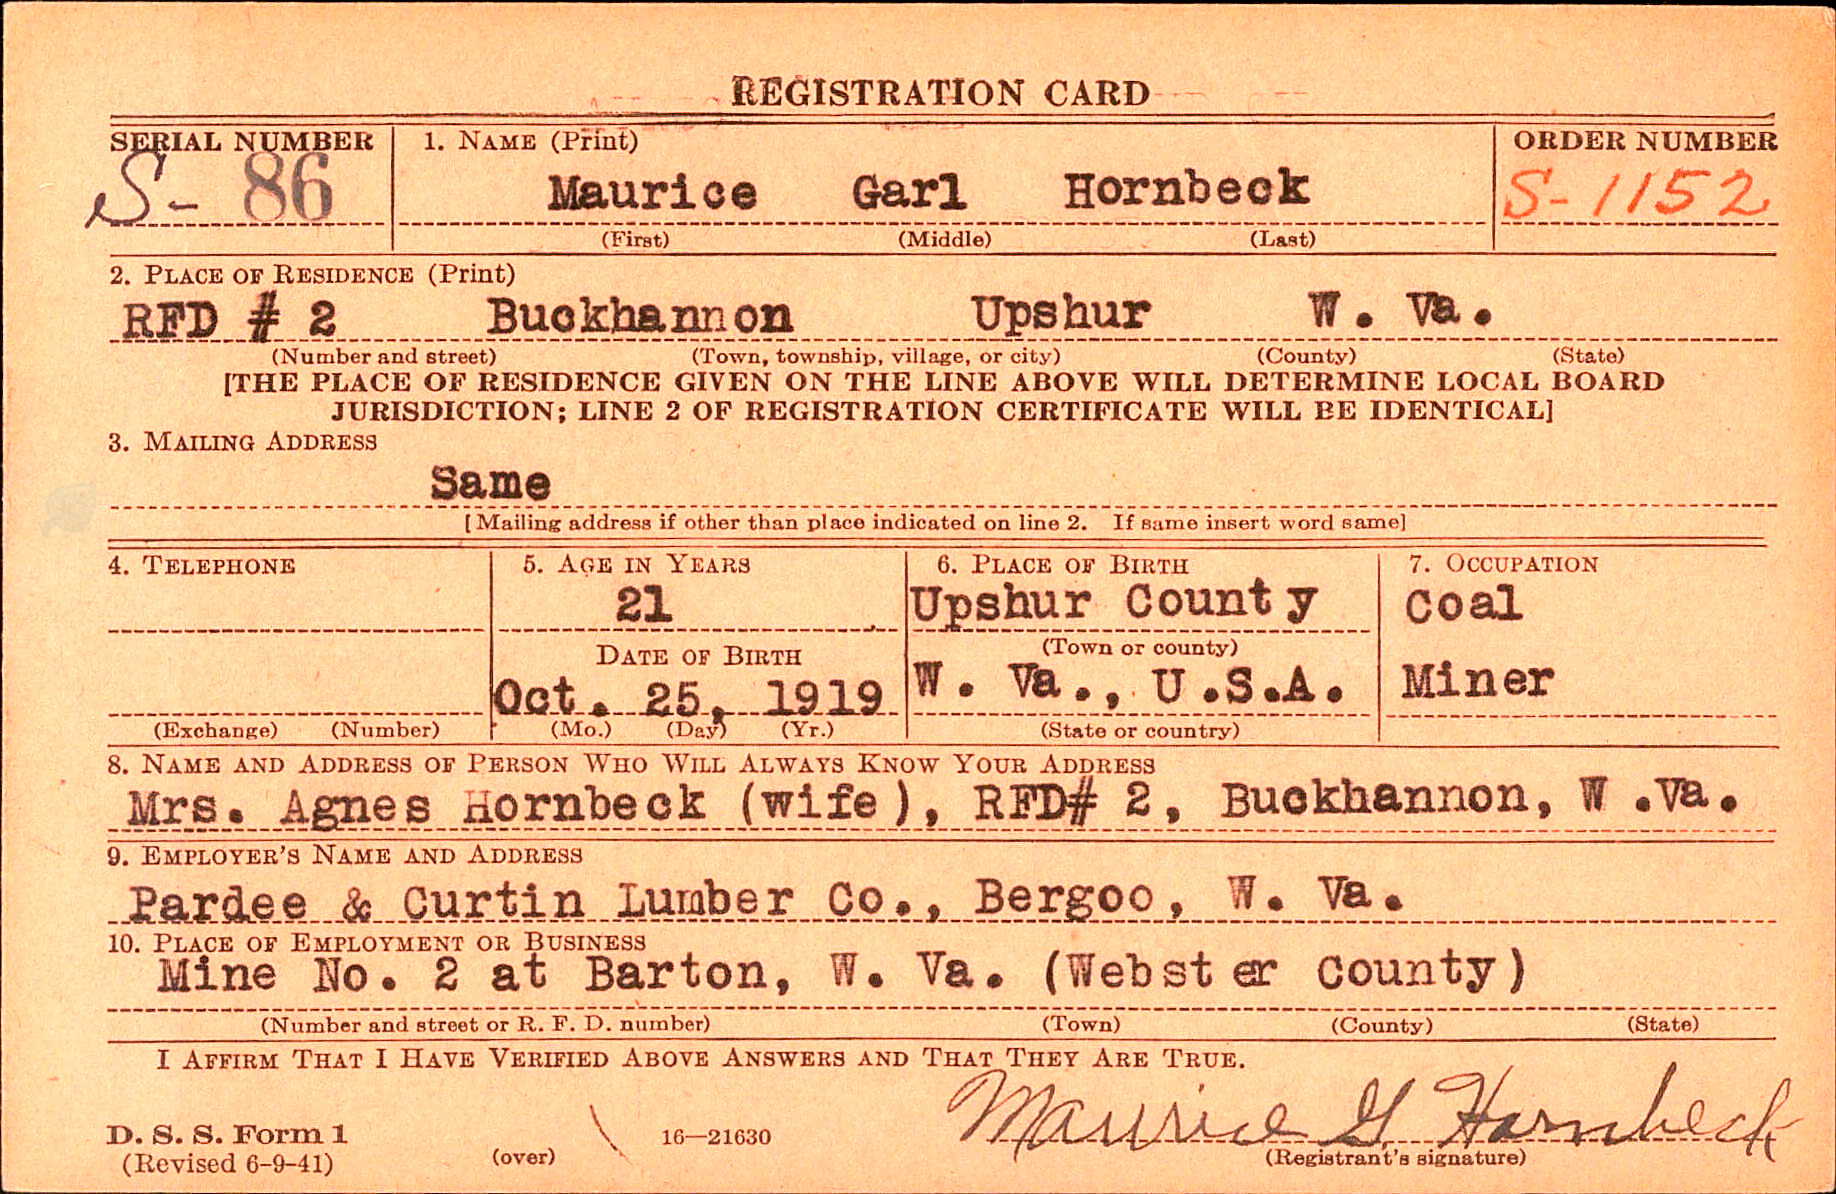 REGISTRATION CARD
SERIAL NUMBER
S- 86
1. NAME (Print)
Maurice Garl Hornbeck
(First) (Middle) (Last)
ORDER NUMBER
S-1152
2. PLACE OF RESIDENCE (Print)
RFD # 2 Buckhannon Upshur W. Va.
(Number and street) (Town, township, village, or city) (County) (State)
[THE PLACE OF RESIDENCE GIVEN ON THE LINE ABOVE WILL DETERMINE LOCAL BOARD
JURISDICTION; LINE 2 OF REGISTRATION CERTIFICATE WILL BE IDENTICAL]
3. MAILING ADDRESS
Same
[Mailing address if other than place indicated on line 2. If same insert word same]
4. TELEPHONE
(Exchange) (Number)
5. AGE IN YEARS
21
DATE OF BIRTH
Oct. 25, 1919
(Mo.) (Day) (Yr.)
6. PLACE OF BIRTH
Upshur County
(Town or county)
W. Va., U.S.A.
(State or country)
7. OCCUPATION
Coal
Miner
8. NAME AND ADDRESS OF PERSON WHO WILL ALWAYS KNOW YOUR ADDRESS
Mrs. Agnes Hornbeck (wife), RFD# 2, Buckhannon, W .Va.
9. EMPLOYER'S NAME AND ADDRESS
Pardee & Curtin Lumber Co., Bergoo, W. Va.
10. PLACE OF EMPLOYMENT OR BUSINESS
Mine No. 2 at Barton, W. Va. (Webster County)
(Number and street or R. F. D. number) (Town) (County) (State)
I AFFIRM THAT I HAVE VERIFIED ABOVE ANSWERS AND THAT THEY ARE TRUE.
Maurice G Hornbeck
(Registrant's signature)
D. S. S. Form 1
(Revised 6-9-41) (over) 16—21630